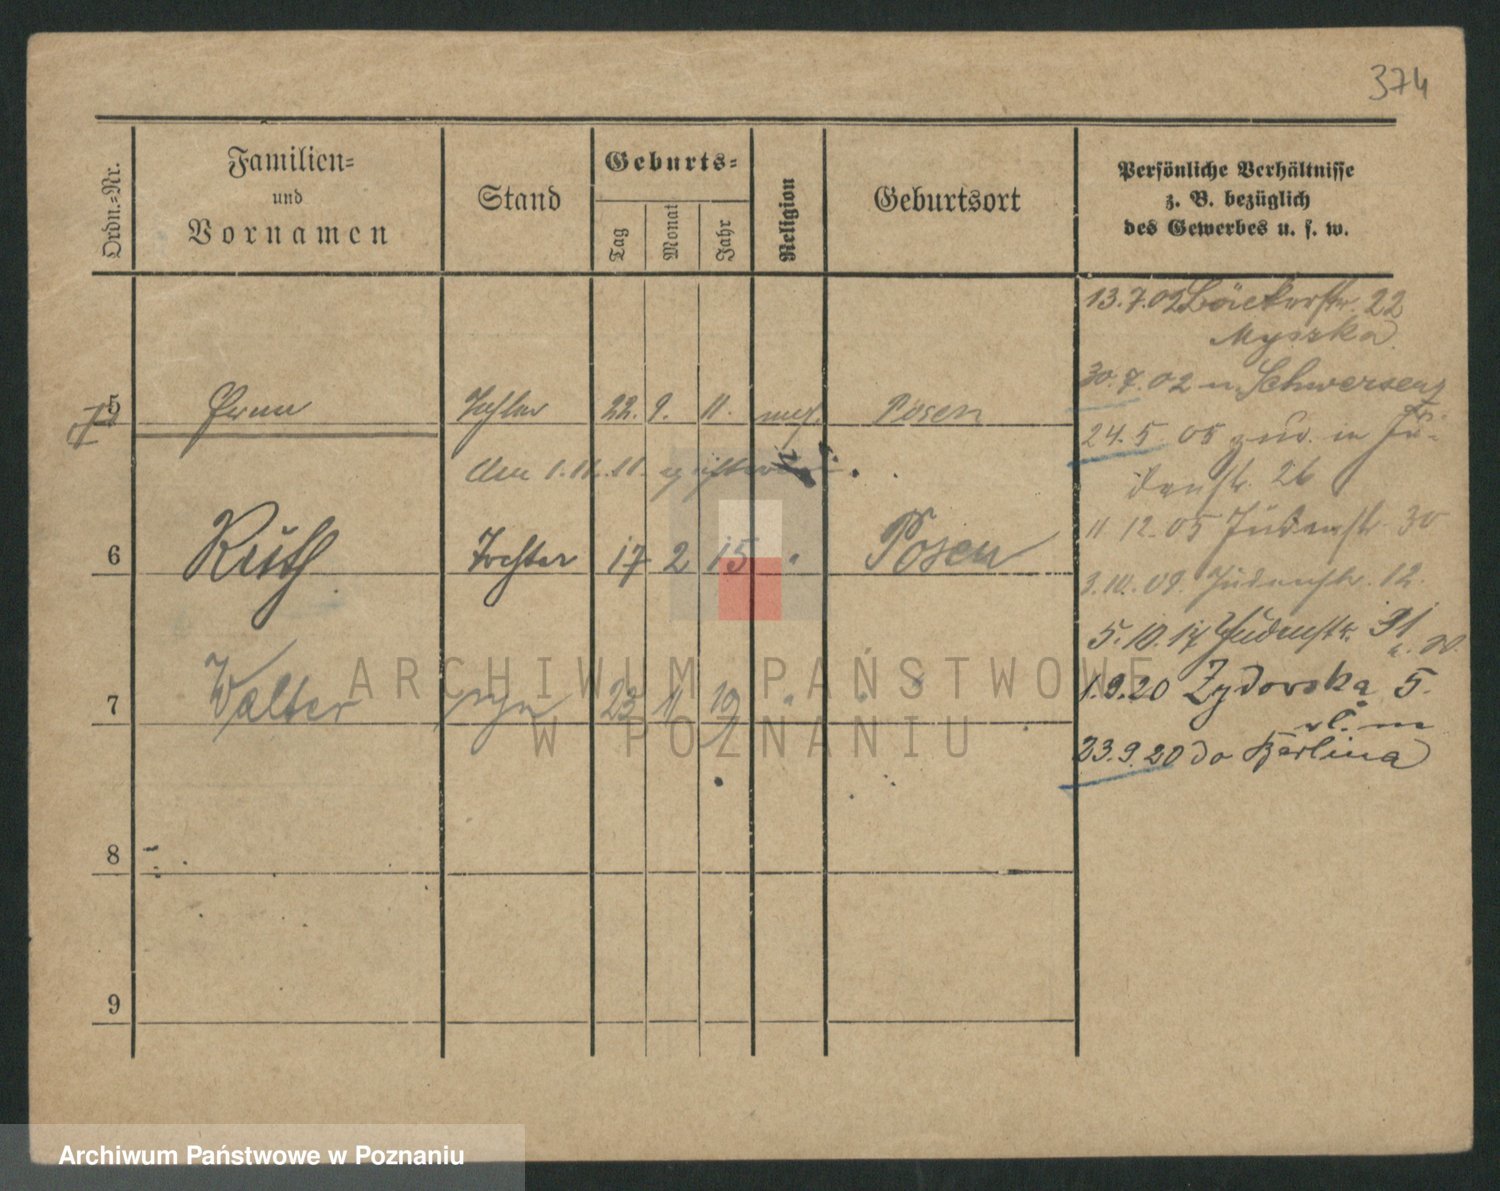 374
Ordn.-Nr.
Familien-
und
Vornamen
Stand
Geburts-
Tag
Monat
Jahr
Religion
Geburtsort
Persönliche Verhältnisse
z. B. bezüglich
des Gewerbes u. s. w.
13.7.02 Bäckerstr. 22
Myszka
30.7.02 n. Schwersenz
5 22. 9. 11. Posen
24.5 05 zur. in Ju-
den 1.11.11.
denstr. 26
11 12.05 Judenstr. 30
6 Ruth Tochter 17 2 15 " Posen
3.10.09. Judenstr. 12.
5.10.17 Judenstr. 31
7 Walter 23 11 19 " " "
1.9.20 Żydowska 5.
23.9.20 do Berlina
8
9
ARCHIWUM PAŃSTWOWE
W POZNANIU
Archiwum Państwowe w Poznaniu